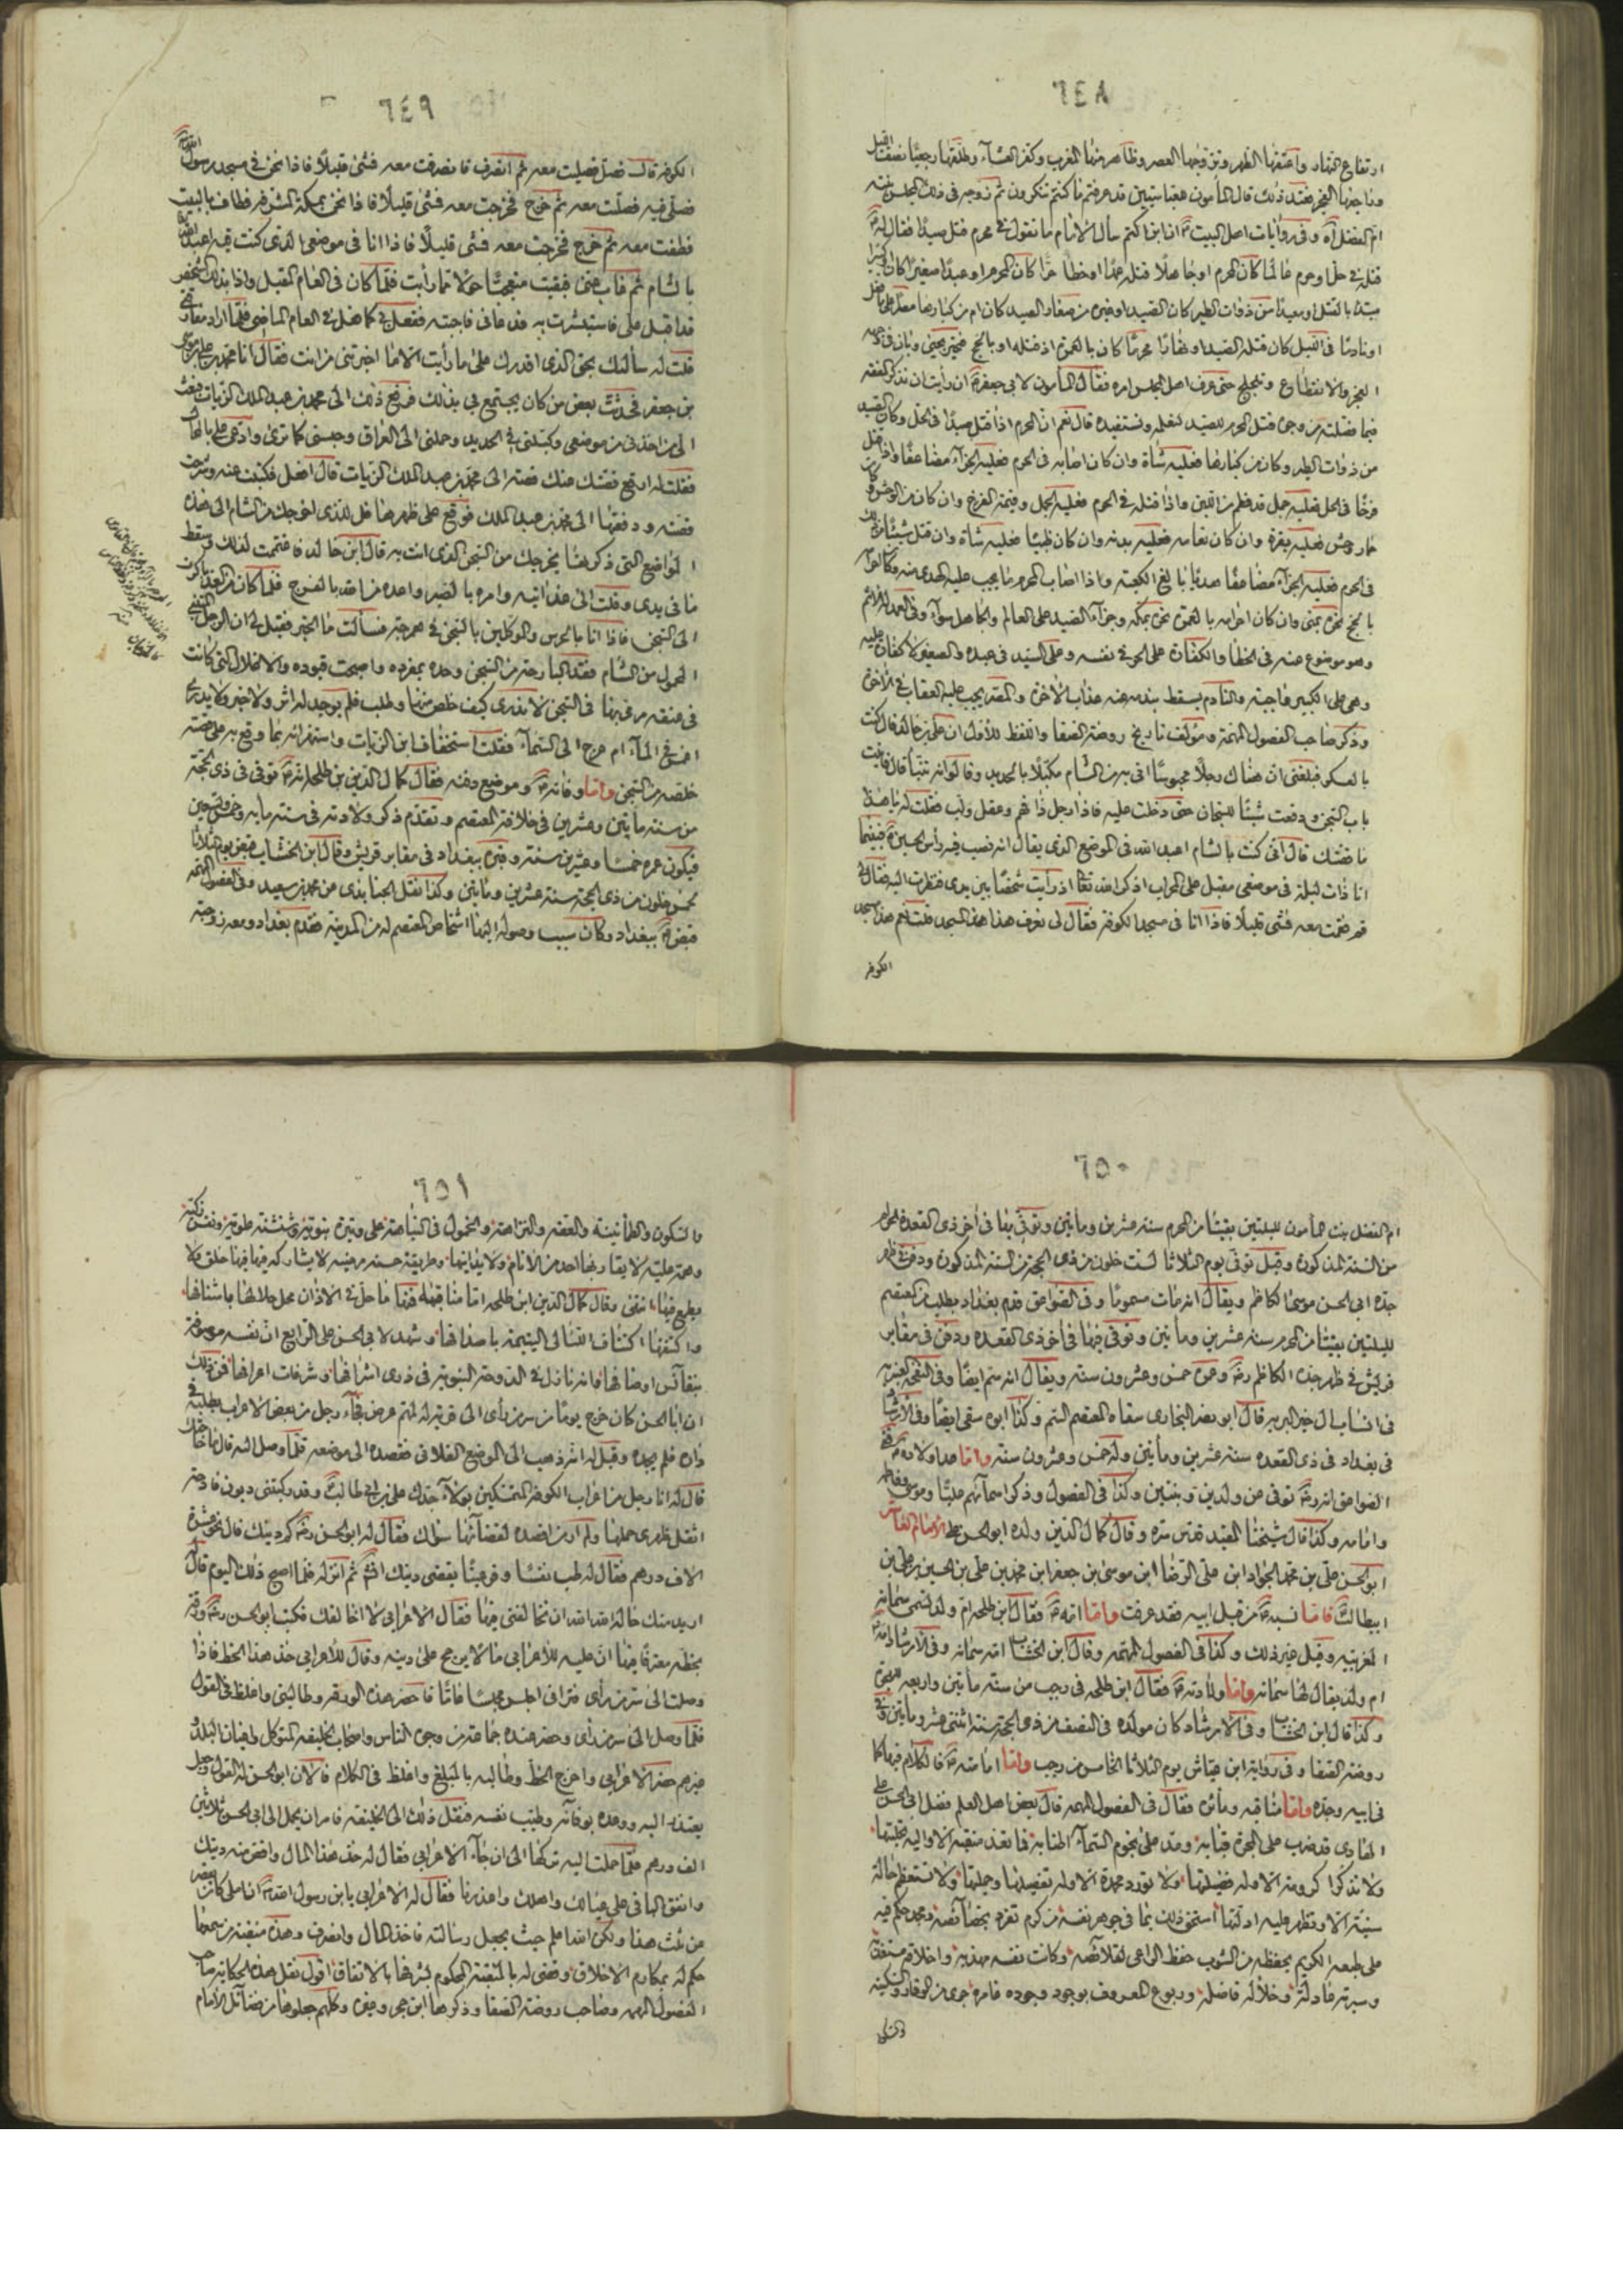 ٦٤٨
ارتفاع النهار واعتقها الظهر وتزوجها العصر وظاهر منها المغرب وكفر العشاء وطلقها رجعيا نصف الليل
وراجعها الفجر فعند ذلك قال المأمون للعباسيين قد عرفتم ما كنتم تنكرون ثم زوجه في ذلك المجلس بنته
ام الفضل آه وفي روايات اهل البيت ان ابن اكثم سأل الامام ما تقول في محرم قتل صيدا فقال له
قتله في حل او حرم عالما كان المحرم او جاهلا قتله عمدا او خطأ حرا كان المحرم او عبدا صغيرا كان او كبيرا
مبتدئا بالقتل او معيدا من ذوات الطير كان الصيد او غيره من صغار الصيد كان ام من كبارها مصرا على ما فعل
او نادما في الليل كان قتله الصيد او نهارا محرما كان بالعمرة اذ قتله او بالحج فتحير يحيى وبان في وجهه
العجز والانقطاع وتلجلج حتى عرف اهل المجلس امره فقال المأمون لابي جعفر ان رأيت ان تذكر الفقه
فيما فصلته من وجوه قتل المحرم الصيد لنعلمه ونستفيده قال نعم ان المحرم اذا قتل صيدا في الحل وكان الصيد
من ذوات الطير وكان من كبارها فعليه شاة وان كان اصابه في الحرم فعليه الجزاء مضاعفا واذا قتل
فرخا في الحل فعليه حمل قد فطم من اللبن واذا قتله في الحرم فعليه الحمل وقيمة الفرخ وان كان من الوحش وكان
حمار وحش فعليه بقرة وان كان نعامة فعليه بدنة وان كان ظبيا فعليه شاة وان قتل شيئا من ذلك
في الحرم فعليه الجزاء مضاعفا هديا بالغ الكعبة واذا اصاب المحرم ما يجب عليه الهدي منه وكان احرامه
بالحج نحره بمنى وان كان احرامه بالعمرة نحره بمكة وجزاء الصيد على العالم والجاهل سواء وفي العمد له المأثم
وهو موضوع عنه في الخطأ والكفارة على الحر في نفسه وعلى السيد في عبده والصغير لا كفارة عليه
وهي على الكبير واجبة والنادم يسقط بندمه عنه عذاب الآخرة والمصر يجب عليه العقاب في الآخرة
وذكر صاحب الفصول المهمة ومؤلف تاريخ روضة الصفا واللفظ للأول ان علي بن خالد قال كنت
بالعسكر فبلغني ان هناك رجلا محبوسا اتى به من الشام مكبلا بالحديد وقالوا انه تنبأ قال فاتيت
باب السجن ودفعت شيئا للسجان حتى دخلت عليه فاذا رجل ذا فهم وعقل ولب فقلت له يا هذا
ما قصتك قال اني كنت بالشام اعبد الله في الموضع الذي يقال انه نصب فيه رأس الحسين فبينما
انا ذات ليلة في موضعي مقبل على المحراب اذكر الله تعالى اذ رأيت شخصا بين يدي فنظرت اليه فقال لي
قم فقمت معه فمشى قليلا فاذا انا في مسجد الكوفة فقال لي تعرف هذا المسجد قلت نعم هذا مسجد
الكوفة
٦٤٩
الكوفة قال فصلى فصليت معه ثم انصرف فانصرفت معه فمشى قليلا فاذا نحن في مسجد رسول الله
فصلى فيه فصليت معه ثم خرج فخرجت معه فمشى قليلا فاذا نحن بمكة المشرفة فطاف بالبيت
فطفت معه ثم خرج فخرجت معه فمشى قليلا فاذا انا في موضعي الذي كنت فيه اعبد الله
بالشام ثم غاب عني فبقيت متعجبا حولا مما رأيت فلما كان في العام المقبل واذا بذلك الشخص
قد اقبل علي فاستبشرت به فدعاني فاجبته ففعل بي كما فعل في العام الماضي فلما اراد مفارقتي
قلت له سألتك بحق الذي اقدرك على ما رأيت الا ما اخبرتني من انت فقال انا محمد بن علي بن موسى
بن جعفر فحدثت بعض من كان يجتمع بي بذلك فرفع ذلك الى محمد بن عبد الملك الزيات فبعث
الي من اخذني من موضعي وكبلني في الحديد وحملني الى العراق وحبسني كما ترى وادعى علي بالمحال
فقلت له ارفع قصتك عنك قصة الى محمد بن عبد الملك الزيات قال افعل فكتبت عنه وشرحت
قصته ودفعتها الى محمد بن عبد الملك فوقع على ظهرها قل للذي اخرجك من الشام الى هذه
المواضع التي ذكرتها يخرجك من السجن الذي انت به قال ابن خالد فاغتممت لذلك وسقط
ما في يدي وقلت الى غد آتيه وآمره بالصبر واعده من الله بالفرج فلما كان من الغد باكرت
الى السجن فاذا انا بالحرس والموكلين بالسجن في هرجة فسألت ما الخبر فقيل لي ان الرجل المتنبي
المحمول من الشام فقد البارحة من السجن وحده بمفرده واصبحت قيوده والاغلال التي كانت
في عنقه مرمي بها في السجن لا ندري كيف خلص منها وطلب فلم يوجد له اثر ولا خبر ولا يدرى
اغمس في الماء ام عرج الى السماء فقلت استخفاف ابن الزيات واستهزائه بما وقع به على قصته
خلصه من السجن واما وفاته وموضع دفنه فقال كمال الدين بن طلحة انه توفي في ذي الحجة
من سنة مأتين وعشرين في خلافة المعتصم وتقدم ذكر ولادته في سنة مائة وخمس وتسعين
فيكون عمره خمسا وعشرين سنة وقبره ببغداد في مقابر قريش وقال ابن الخشاب قبض يوم الثلاثا
لخمس خلون من ذي الحجة سنة عشرين ومأتين وكذا نقل الجنابذي عن محمد بن سعيد وفي الفصول المهمة
قبض ببغداد وكان سبب وصوله اليها اشخاص المعتصم له من المدينة فقدم بغداد ومعه زوجته
٦٥٠
ام الفضل بنت المأمون لليلتين بقيتا من المحرم سنة عشرين ومأتين وتوفي بها في آخر ذي القعدة الحرام
من السنة المذكورة وقيل توفي يوم الثلاثا لست خلون من ذي الحجة من السنة المذكورة ودفن في ظهر
جده ابي الحسن موسى الكاظم ويقال انه مات مسموما وفي الصواعق قدم بغداد بطلب من المعتصم
لليلتين بقيتا من المحرم سنة عشرين ومأتين وتوفي فيها في آخر ذي القعدة ودفن في مقابر
قريش في ظهر جده الكاظم وعمره خمس وعشرون سنة ويقال انه سم ايضا وفي النفحة العنبرية
في انساب آل خير البرية قال ابو نصر البخاري سقاه المعتصم السم وكذا ابوه سقي ايضا وفي الارشاد
في بغداد في ذي القعدة سنة عشرين ومأتين وله خمس وعشرون سنة واما عدد اولاده ففي
الصواعق انه توفي عن ولدين وبنتين وكذا في الفصول وذكر اسمائهم عليا وموسى وفاطمة
وامامة وكذا قال شيخنا المفيد قدس سره وقال كمال الدين ولده ابو الحسن علي الامام العاشر
ابو الحسن علي بن محمد الجواد ابن علي الرضا ابن موسى بن جعفر ابن محمد بن علي بن الحسين بن علي بن
ابيطالب فاما نسبه من قبل ابيه فقد عرفت واما امه فقال ابن طلحة ام ولد تسمى سمانة
المغربية وقيل غير ذلك وكذا في الفصول المهمة وقال ابن الخشاب امه سمانة وفي الارشاد امه
ام ولد يقال لها سمانة واما ولادته فقال ابن طلحة في رجب من سنة مأتين واربعة عشر للهجرة
وكذا قال ابن الخشاب وفي الارشاد كان مولده في النصف من ذي الحجة سنة اثنتي عشر ومأتين وفي
روضة الصفا وفي رواية ابن عياش يوم الثلاثا الخامس من رجب واما امامته فالكلام فيها كما
في ابيه وجده واما مناقبه ومآثره فقال في الفصول المهمة قال بعض اهل العلم فضل ابي الحسن علي
الهادي قد ضرب على المجرة قبابه ومد على نجوم السماء اطنابه فما تعد منقبة الا واليه نحلتها
ولا تذكر كريمة الا وله فضيلتها ولا تورد محمدة الا وله تفصيلها وجملتها ولا تستعظم حالة
سنية الا وتظهر عليه ادلتها استحق ذلك بما في جوهر نفسه من كرم تفرد بخصائصه ومجد حكم فيه
على طبعه الكريم بحفظه من الشوب حفظ الراعي لقلائصه وكانت نفسه مهذبة واخلاقه مستعذبة
وسيرته عادلة وخلاله فاضلة وربوع المعروف بوجود وجوده عامرة جرى من الوقار والسكينة
والسكون
٦٥١
والسكون والطمأنينة والعفة والنزاهة والخمول في النباهة على وتيرة نبوية وشنشنة علوية ونفس زكية
وهمة علية لا يقاربها احد من الانام ولا يدانيها وطريقة حسنة مرضية لا يشاركه فيها خلق ولا
يطمع فيها انتهى وقال كمال الدين ابن طلحة اما مناقبه فمنها ما حل في الاذان محل حلاها باشنافها
واكتنفها اكتناف اللئالي اليتيمة باصدافها وشهد لابي الحسن علي الرابع ان نفسه موصوفة
بنفائس اوصافها وانه نازل في الدوحة النبوية في ذرى اشرافها وشرفات اعرافها فمن ذلك
ان ابا الحسن كان خرج يوما من سر من رأى الى قرية له لمهم عرض فجاء رجل من بعض الاعراب يطلبه في
داره فلم يجده وقيل له انه ذهب الى الموضع الفلاني فقصده الى موضعه فلما وصل اليه قال ما حاجتك
قال له انا رجل من اعراب الكوفة المتمسكين بولاء جدك علي بن ابي طالب وقد ركبتني ديون فادحة
اثقل ظهري حملها ولم ار من اقصده لقضائها سواك فقال له ابو الحسن كم دينك قال نحو عشرة
الاف درهم فقال له طب نفسا وقر عينا يقضى دينك انشاء الله ثم انزله فلما اصبح ذلك اليوم قال له
اريد منك حاجة الله الله ان تخالفني فيها فقال الاعرابي لا اخالفك فكتب ابو الحسن ورقة
بخطه معترفا فيها ان عليه للأعرابي مالا يرجح على دينه وقال للأعرابي خذ هذا الخط فاذا
وصلت الى سر من رأى فتراني اجلس مجلسا عاما فاحضر هذه الورقة وطالبني واغلظ في القول
فلما وصل الى سر من رأى وحضر عنده جماعة من وجوه الناس واصحاب الخليفة المتوكل واعيان البلد و
غيرهم حضر الاعرابي واخرج الخط وطالبه بالمبلغ واغلظ في الكلام فالان ابو الحسن له القول وجعل
يعتذر اليه ووعده بوفائه وطيب نفسه فنقل ذلك الى الخليفة فامر ان يحمل الى ابي الحسن ثلاثين
الف درهم فلما حملت اليه تركها الى ان جاء الاعرابي فقال له خذ هذا المال واقض منه دينك
وانفق الباقي على عيالك واهلك واعذرنا فقال له الاعرابي يابن رسول الله ان املي كان يقصر
عن ثلث هذا ولكن الله اعلم حيث يجعل رسالته فاخذ المال وانصرف وهذه منقبة من سمعها
حكم له بمكارم الاخلاق وقضى له بالمنقبة المحكوم بشرفها بالاتفاق اقول نقل هذه الحكاية صاحب
الفصول المهمة وصاحب روضة الصفا وذكرها ابن حجر وغيره وكلهم جعلوها من فضائل الامام